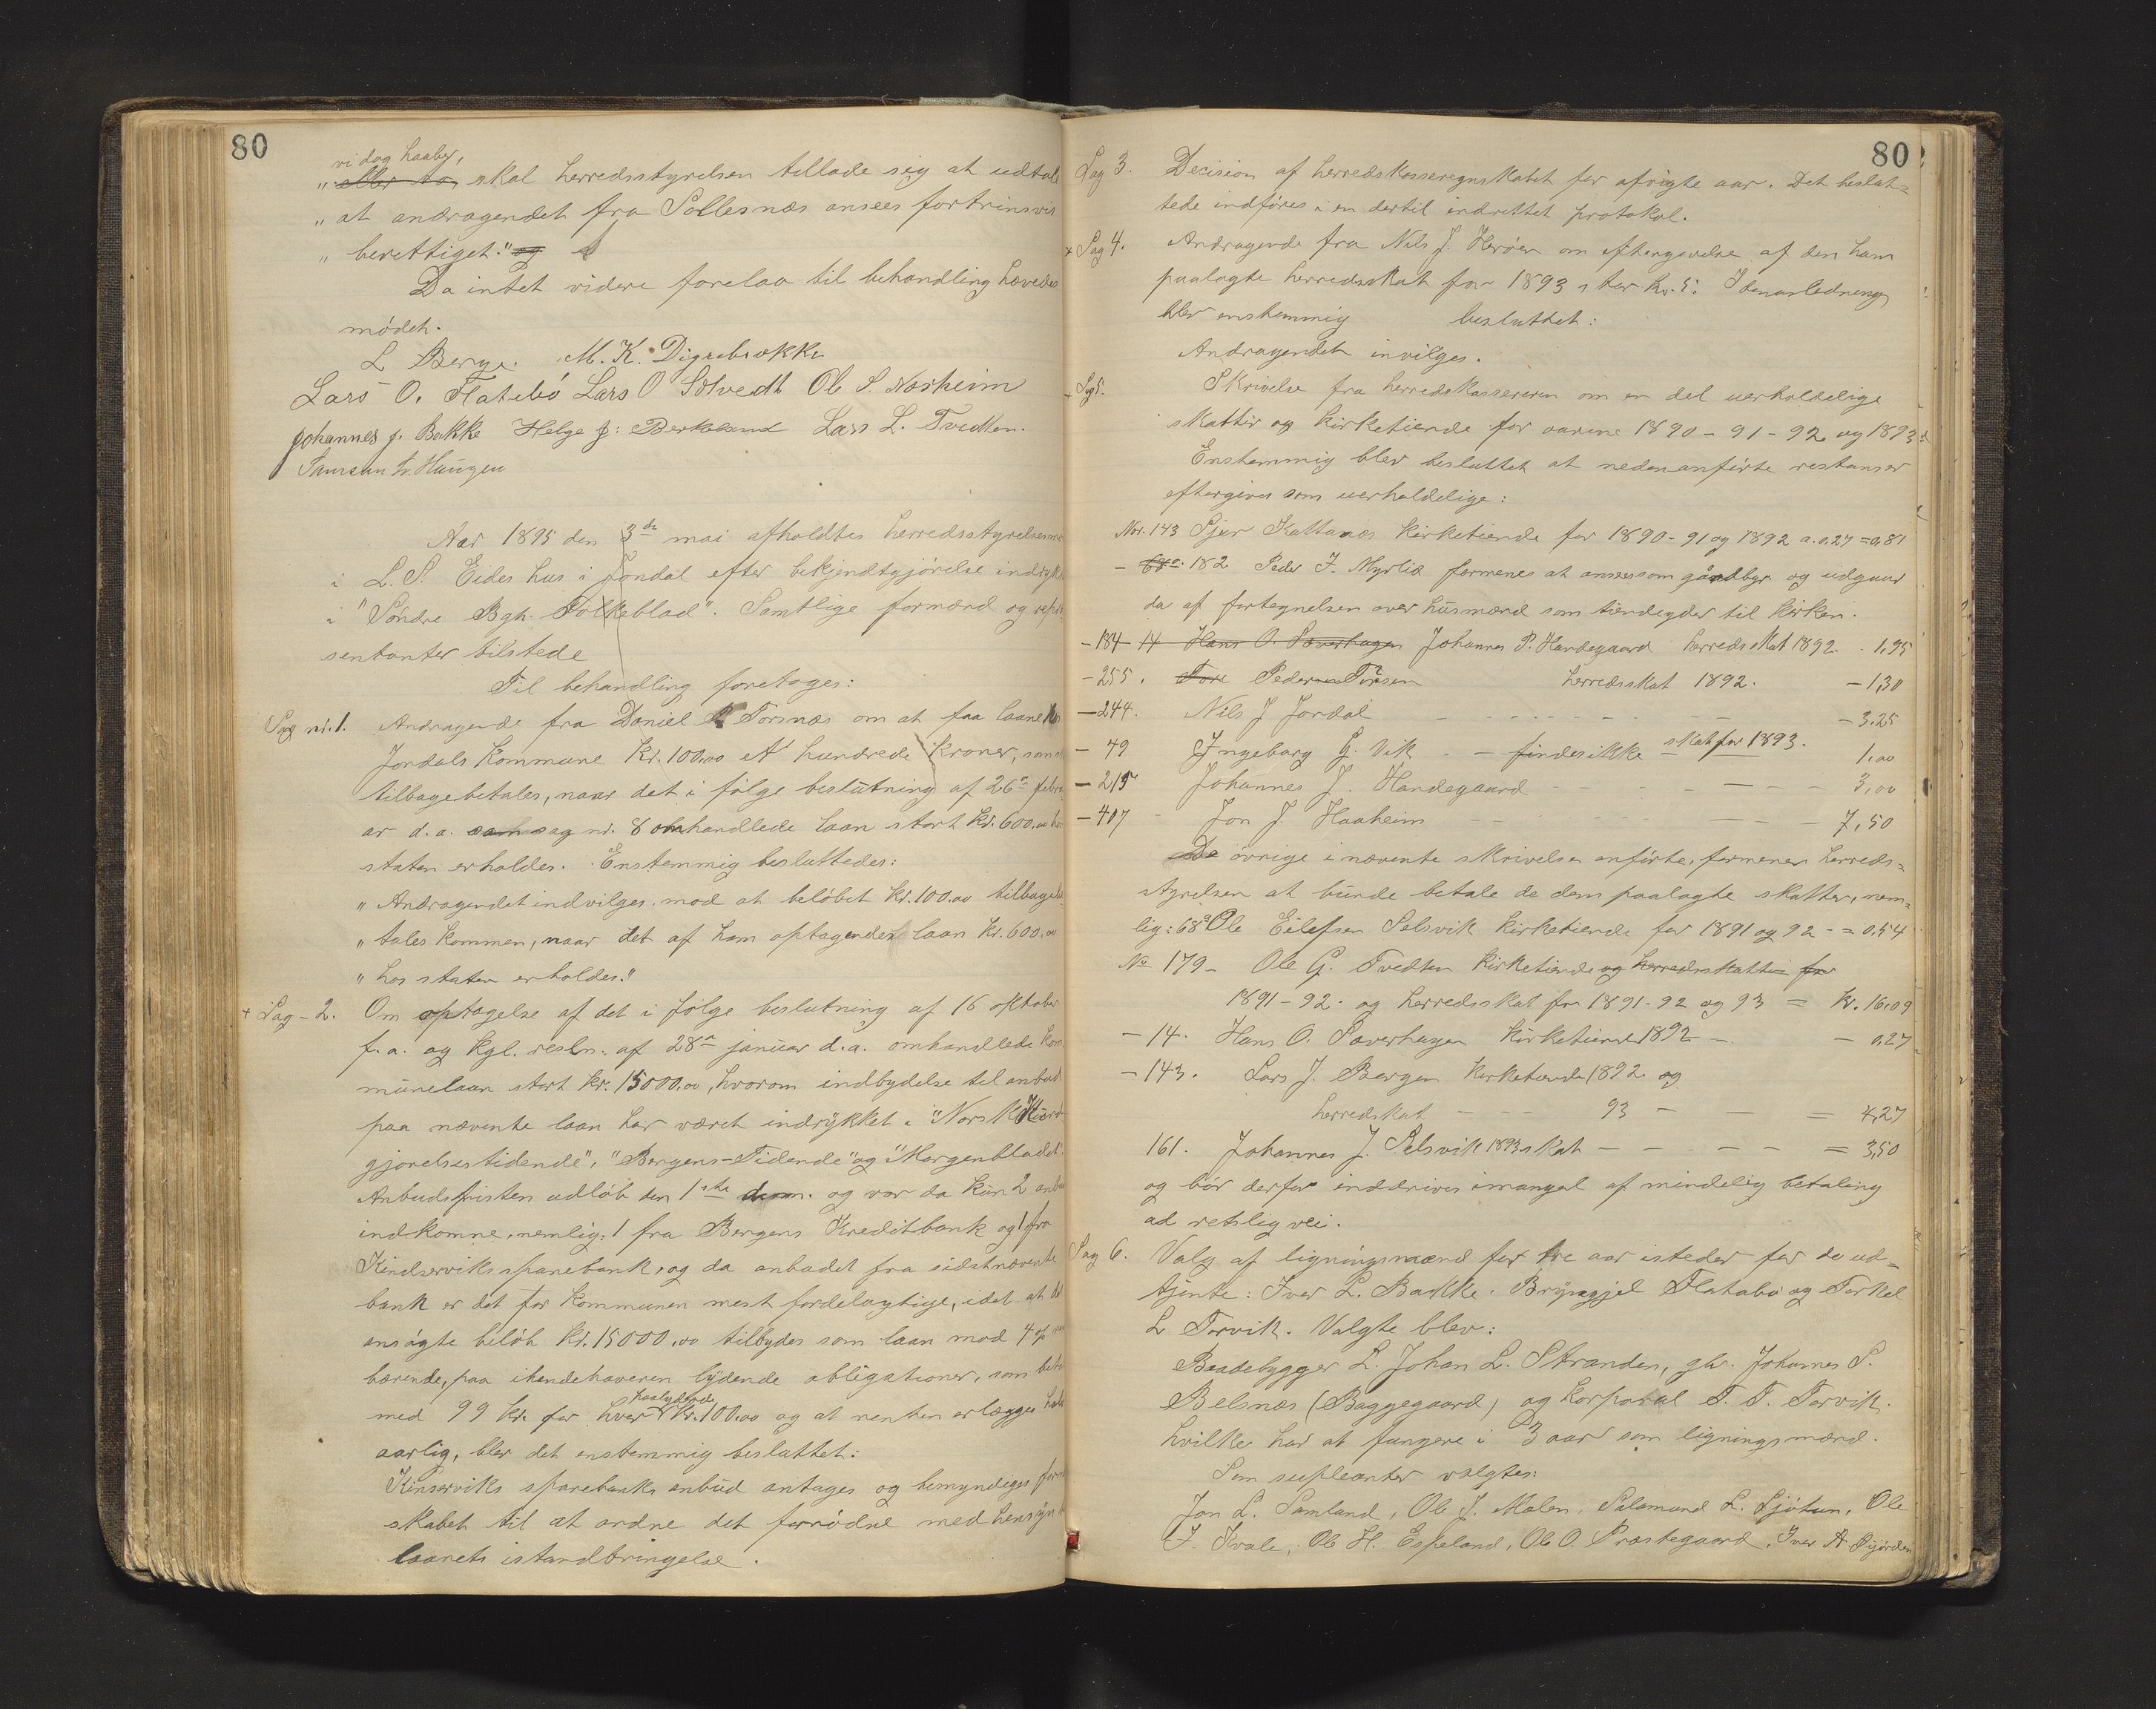 80
vi dog haaber,
„ eller to skal herredsstyrelsen tillade sig at udtale
„ at andragendet fra Sollesnæs ansees fortrinsvis
„ berettiget." og
Da intet videre forelaa til behandling hævedes
mödet.
L Berge. M. K. Digrebrække
Lars O. Flatebö Lars O Solvedt Ole S. Næsheim
Johannes J. Bakke Helge J: Berkeland Lars L. Tvedten.
Samson Haugen
Aar 1895 den 3de mai afholdtes herredsstyrelsesmø
i L. S. Eides hus i Jondal efter bekjendtgjörelse indryk
i "Söndre Bgh. Folkeblad". Samtlige formænd og repræ
sentanter tilstede
Til behandling foretoges:
Sag nr. 1. Andragende fra Daniel Torsnæs om at faa laane
Jondals kommune Kr. 100,00 et hundrede kroner, som
tilbagebetales, naar det i fölge beslutning af 26de febru
ar d.a. sag nr. 8 omhandlede laan stort kr. 600,00
staten erholdes. Enstemmig besluttedes:
„ Andragendet indvilges mod at belöbet kr. 100.00 tilbagebe
„ tales kommen, naar det af ham optagendes laan kr. 600,00
„ hos staten erholdes."
+ Sag - 2. Om optagelse af det i fölge beslutning af 16 oktober
f. a. og kgl. resln. af 28de januar d.a. omhandlede kom
munelaan stort kr. 15000.00, hvorom indbydelse til anbud
paa nævente laan har været indrykket i "Norsk Kund
gjorelsestidende", "Bergens-Tidende" og "Morgenbladet".
Anbudsfristen udlöb den 1ste dm. og var da kun 2 anbud
indkomne, nemlig: 1 fra Bergens Kreditbank og 1 fra
Kindserviks sparebank, og da anbudet fra sidstnævente
bank er det for kommunen mest fordelagtige, idet at det
ansögte belöb kr. 15000,00 tilbydes som laan mod 4 %
bærende, paa ihendehaveren lydende obligationer, som beta
paalydende
med 99 kr. for hver kr. 100,00 og at renten erlægges halv
aarlig, blev det enstemmig besluttet:
Kinserviks sparebanks anbud antages og bemyndiges form
skabet til at ordne det fornödne med hensyn
laanets istandbringelse.
80
Sag 3. Decision af herredskasseregnskabet for afvigte aar. Det beslut=
tede indföres i en dertil indrettet protokol.
+ Sag 4. Andragende fra Nils J. Herøen om eftergivelse af den ham
paalagte herredsskat for 1893 stor kr. 5. I denanledning
blev enstemmig besluttet:
Andragendet invilges.
Sag 5. Skrivelse fra herredskassereren om en del uerholdelige
skatter og kirketiende for aarene 1890 - 91 - 92 og 1893.
Enstemmig blev besluttet at nedenanförte restanser
eftergives som uerholdelige:
Nor. 143 Sjur Kattanæs kirketiende for 1890 - 91 og 1892 a. 0.27 = 0,81
- 182 Peder J. Myrlid formenes at ansees som gårdbgr. og udgaar
da af fortegnelsen over husmænd som tiendeyder til kirken.
- 184 - 14 Hans O. Saverhagen Johannes P. Handegaard herredsskat 1892 . 1,95
- 255. Tore Peder Torsen herredsskat 1892. - 1,30
- 244. Nils J Jordal - - - - - - - = 3.25
- 49 Ingeborg G. Vik - - findes ikke skat for 1893. 1,00
- 215 Johannes J. Handegaard - - - - - - 3,00
- 407 Jon J. Haaheim - - - - 7,50
De övrige i nævente skrivelse anförte, formener herreds=
styrelsen at burde betale de dem paalagte skatter, nem=
lig: 68a Ole Eilefsen Selsvik kirketiende for 1891 og 92 - = 0.54
No 179 - Ole G. Tvedten kirketiende og herredsskatten for
1891 - 92. og herredsskat for 1891 - 92 og 93 = kr. 16,09
- 14. Hans O. Saverhagen kirketiende 1892 - - 0,27
- 143. Lars J. Bergen kirketiende 1892 og
herredskat - - - 93 - = 4,27
161. Johannes J. Selsvik 1893 skat - - - - = 3,50
og bör derfor inddrives imangel af mindelig betaling
ad retslig vei.
Sag 6. Valg af ligningsmænd for tre aar isteder for de ud=
tjente: Iver L. Bakke. Brynjel Flatabö og Torkel
L Torvik. Valgte blev:
Baadebygger L. Johan L. Stranden, gbr. Johannes S.
Belsnæs (Baggegaard) og korporal T. T. Torvik.
hvilke har at fungere i 3 aar som ligningsmænd.
Som supleanter valgtes:
Jon L. Samland, Ole J. Malen, Salamund L. Ljötun, Ole
J. Kvale, Ole H. Espeland, Ole O. Præstegaard, Iver A.